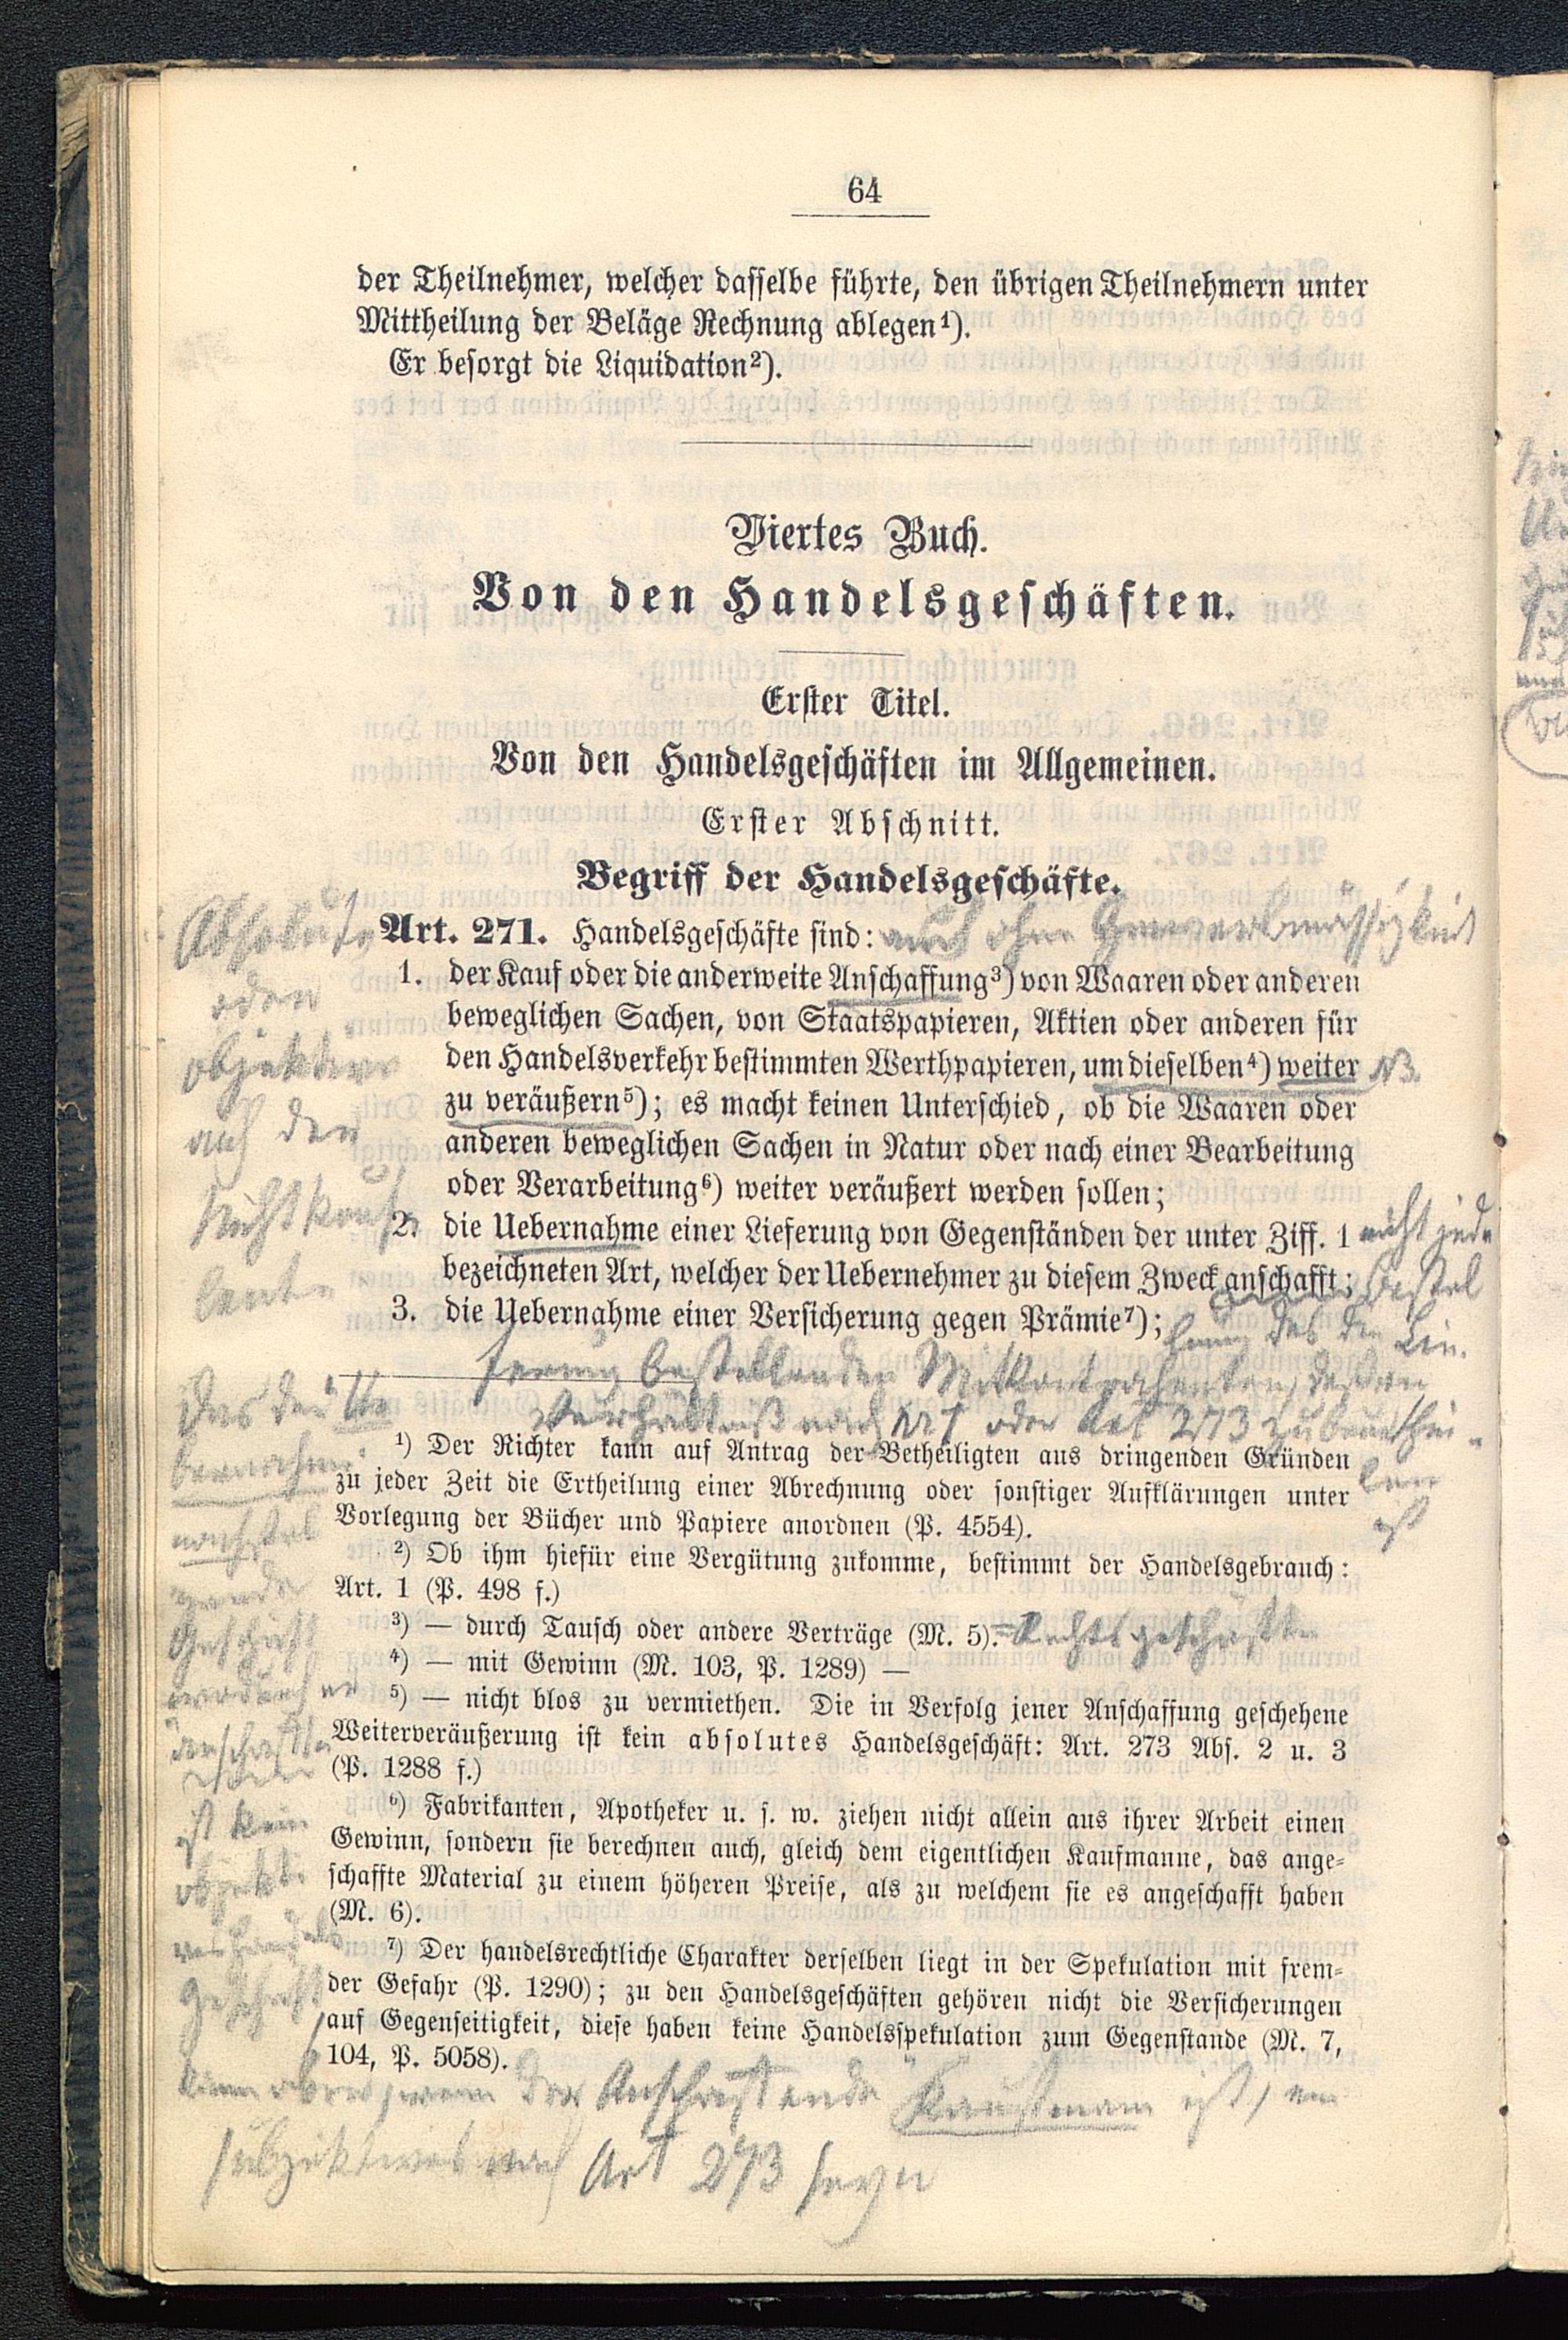 64
der Theilnehmer, welcher dasselbe führte, den übrigen Theilnehmern unter
Mittheilung der Beläge Rechnung ablegen¹).
Er besorgt die Liquidation²).
Viertes Buch.
Von den Handelsgeschäften.
Erster Titel.
Von den Handelsgeschäften im Allgemeinen.
Erster Abschnitt.
Begriff der Handelsgeschäfte.
Absolute
oder
objektive
auch der
Nichtkauf-
leute
Art. 271. Handelsgeschäfte sind: auch ohne Gewerbmässigkeit
1. der Kauf oder die anderweite Anschaffung³) von Waaren oder anderen
beweglichen Sachen, von Staatspapieren, Aktien oder anderen für
den Handelsverkehr bestimmten Werthpapieren, um dieselben⁴) weiter NB.
zu veräußern⁵); es macht keinen Unterschied, ob die Waaren oder
anderen beweglichen Sachen in Natur oder nach einer Bearbeitung
oder Verarbeitung⁶) weiter veräußert werden sollen;
2. die Uebernahme einer Lieferung von Gegenständen der unter Ziff. 1
bezeichneten Art, welcher der Uebernehmer zu diesem Zweck anschafft;
3. die Uebernahme einer Versicherung gegen Prämie⁷);
nicht jede
Bestel
lung des die Lie-
ferung bestellenden Mitkontrahenten, dessen
Verhältniß nach Nr 1 oder Art 273 zu beurthei-
len
ist
¹) Der Richter kann auf Antrag der Betheiligten aus dringenden Gründen
zu jeder Zeit die Ertheilung einer Abrechnung oder sonstiger Aufklärungen unter
Vorlegung der Bücher und Papiere anordnen (P. 4554).
²) Ob ihm hiefür eine Vergütung zukomme, bestimmt der Handelsgebrauch:
Art. 1 (P. 498 f.)
³) — durch Tausch oder andere Verträge (M. 5). = Rechtsgeschäfte
⁴) — mit Gewinn (M. 103, P. 1289) —
⁵) — nicht blos zu vermiethen. Die in Verfolg jener Anschaffung geschehene
Weiterveräußerung ist kein absolutes Handelsgeschäft: Art. 273 Abs. 2 u. 3
(P. 1288 f.)
⁶) Fabrikanten, Apotheker u. s. w. ziehen nicht allein aus ihrer Arbeit einen
Gewinn, sondern sie berechnen auch, gleich dem eigentlichen Kaufmanne, das ange-
schaffte Material zu einem höheren Preise, als zu welchem sie es angeschafft haben
(M. 6).
⁷) Der handelsrechtliche Charakter derselben liegt in der Spekulation mit frem-
der Gefahr (P. 1290); zu den Handelsgeschäften gehören nicht die Versicherungen
auf Gegenseitigkeit, diese haben keine Handelsspekulation zum Gegenstande (M. 7,
104, P. 5058).
Geschäft
ist kein
objekti-
ves Handels
Geschäft
kann aber, wenn der Anschaffende Kaufmann ist, ein
subjektives nach Art 273 seyn